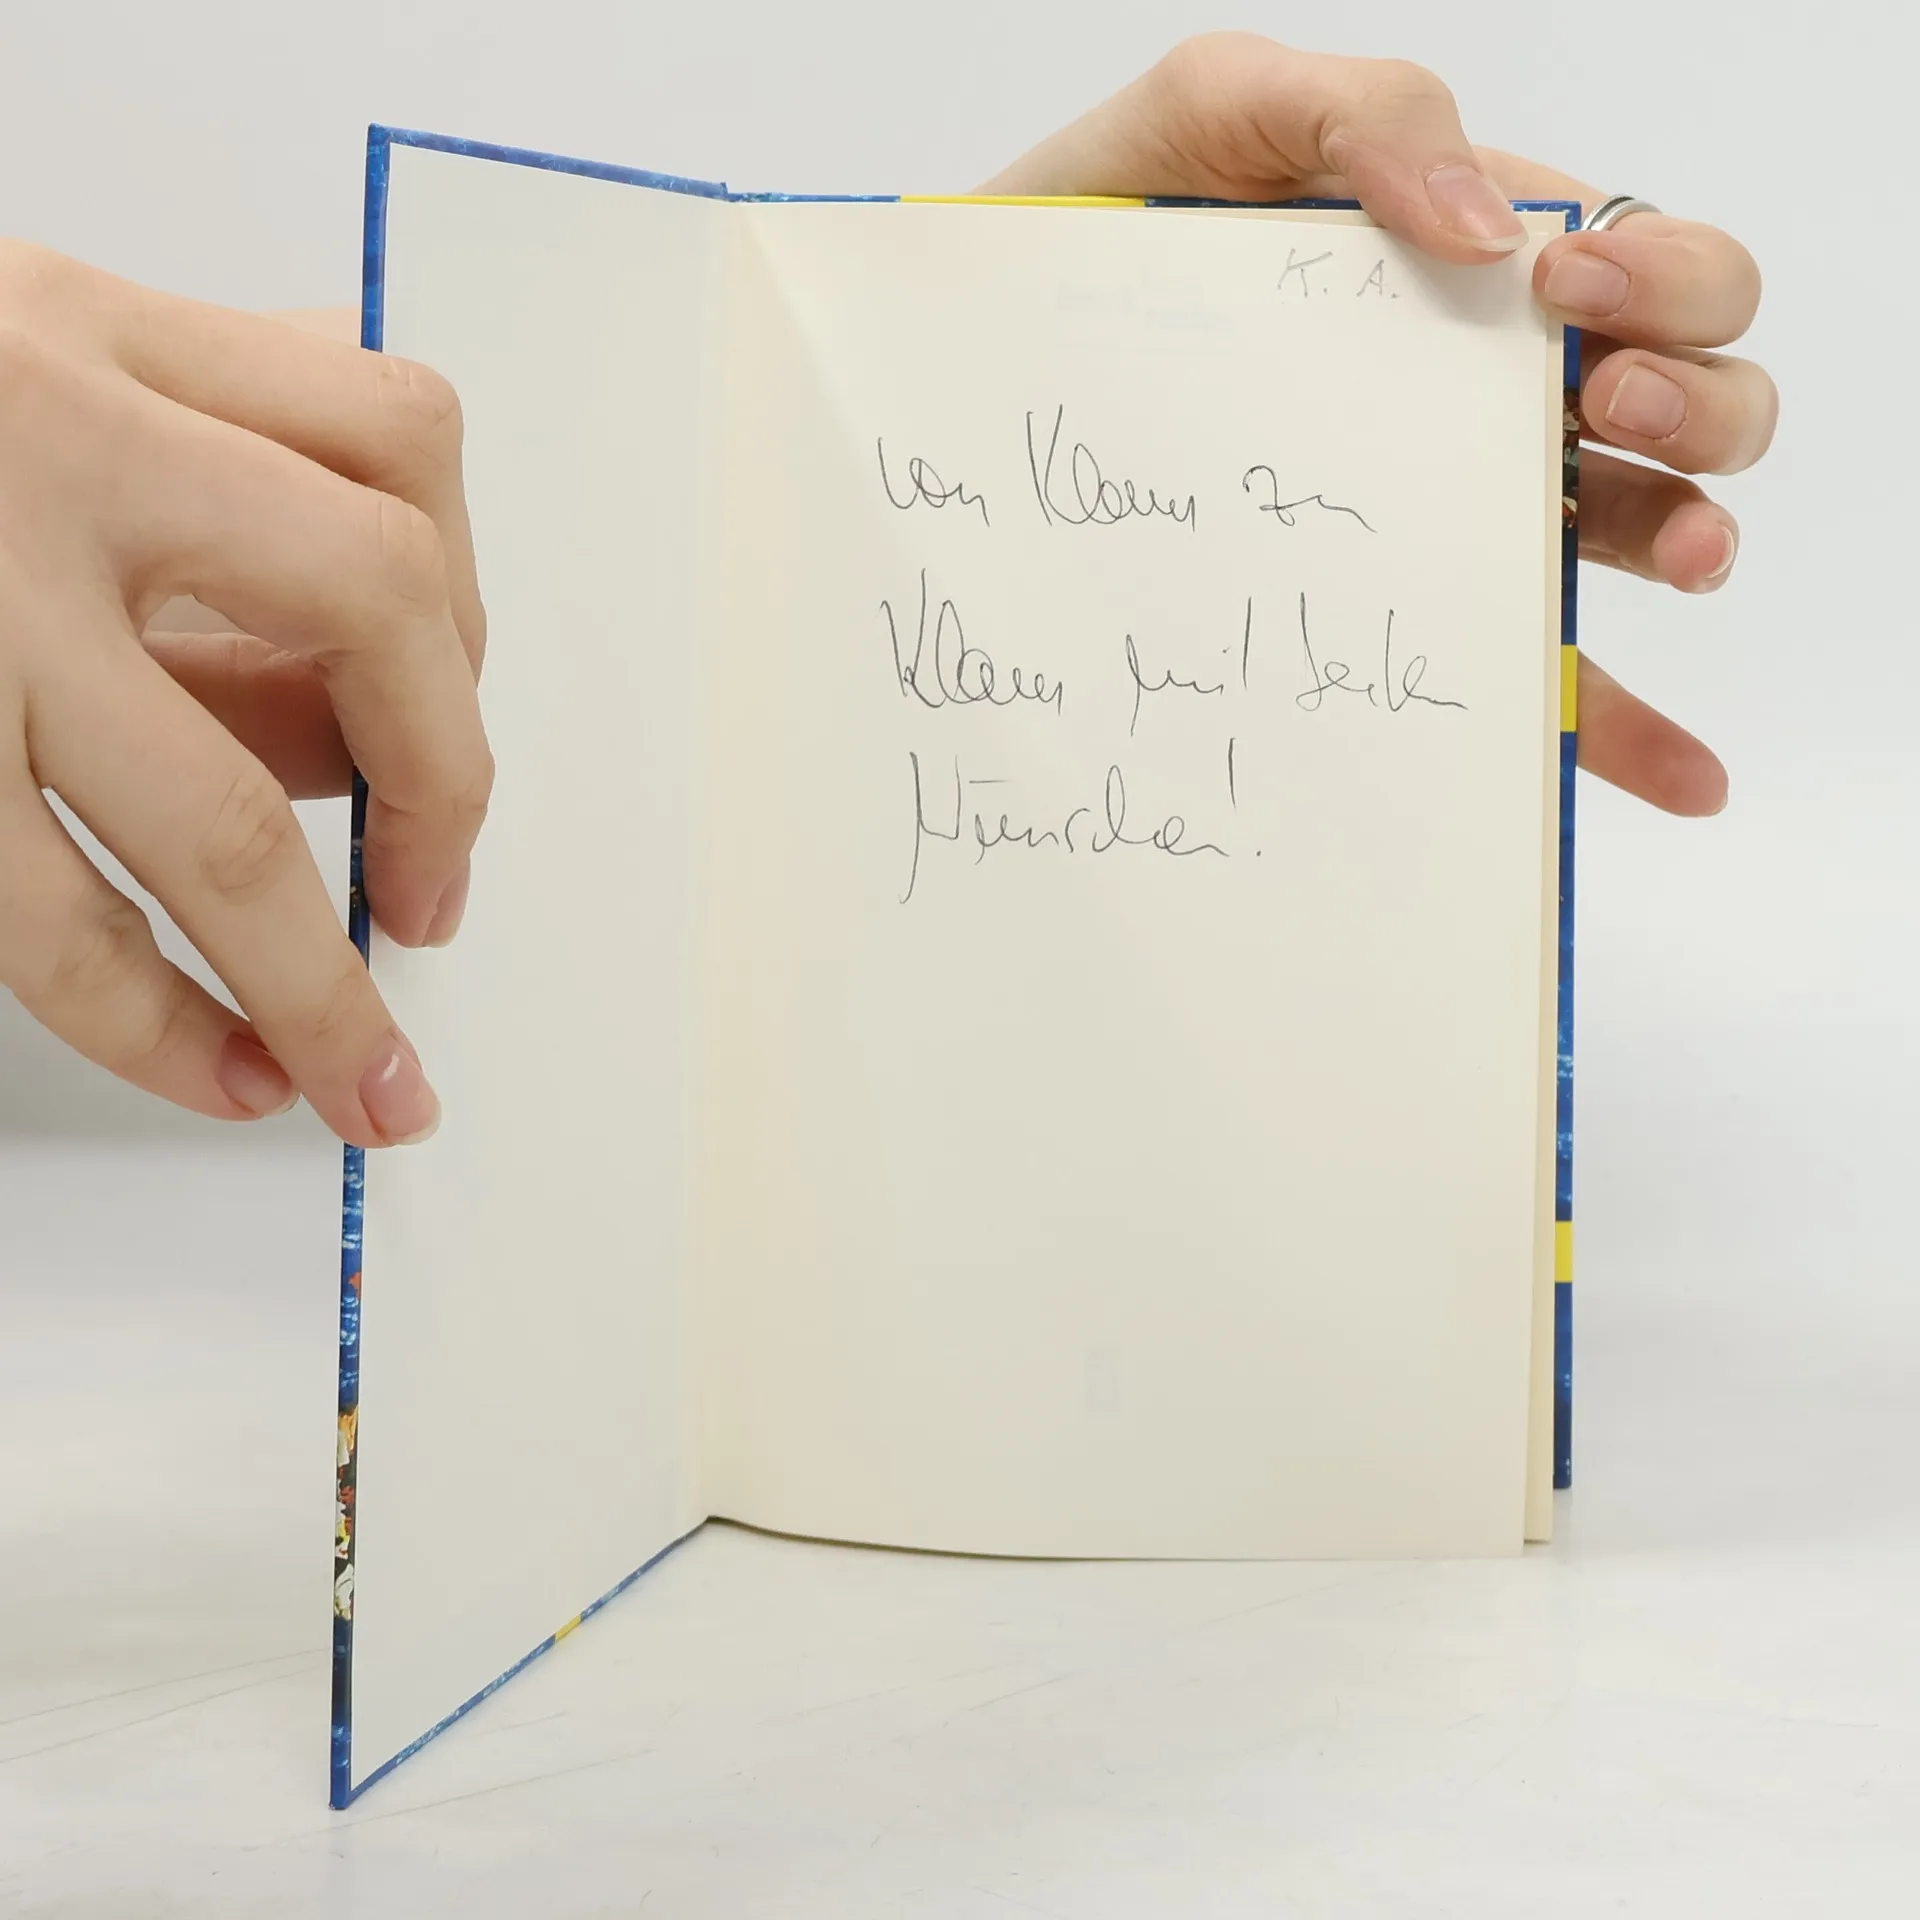 K. A.
von Klaus zu
Klaus mit besten
Wünschen!